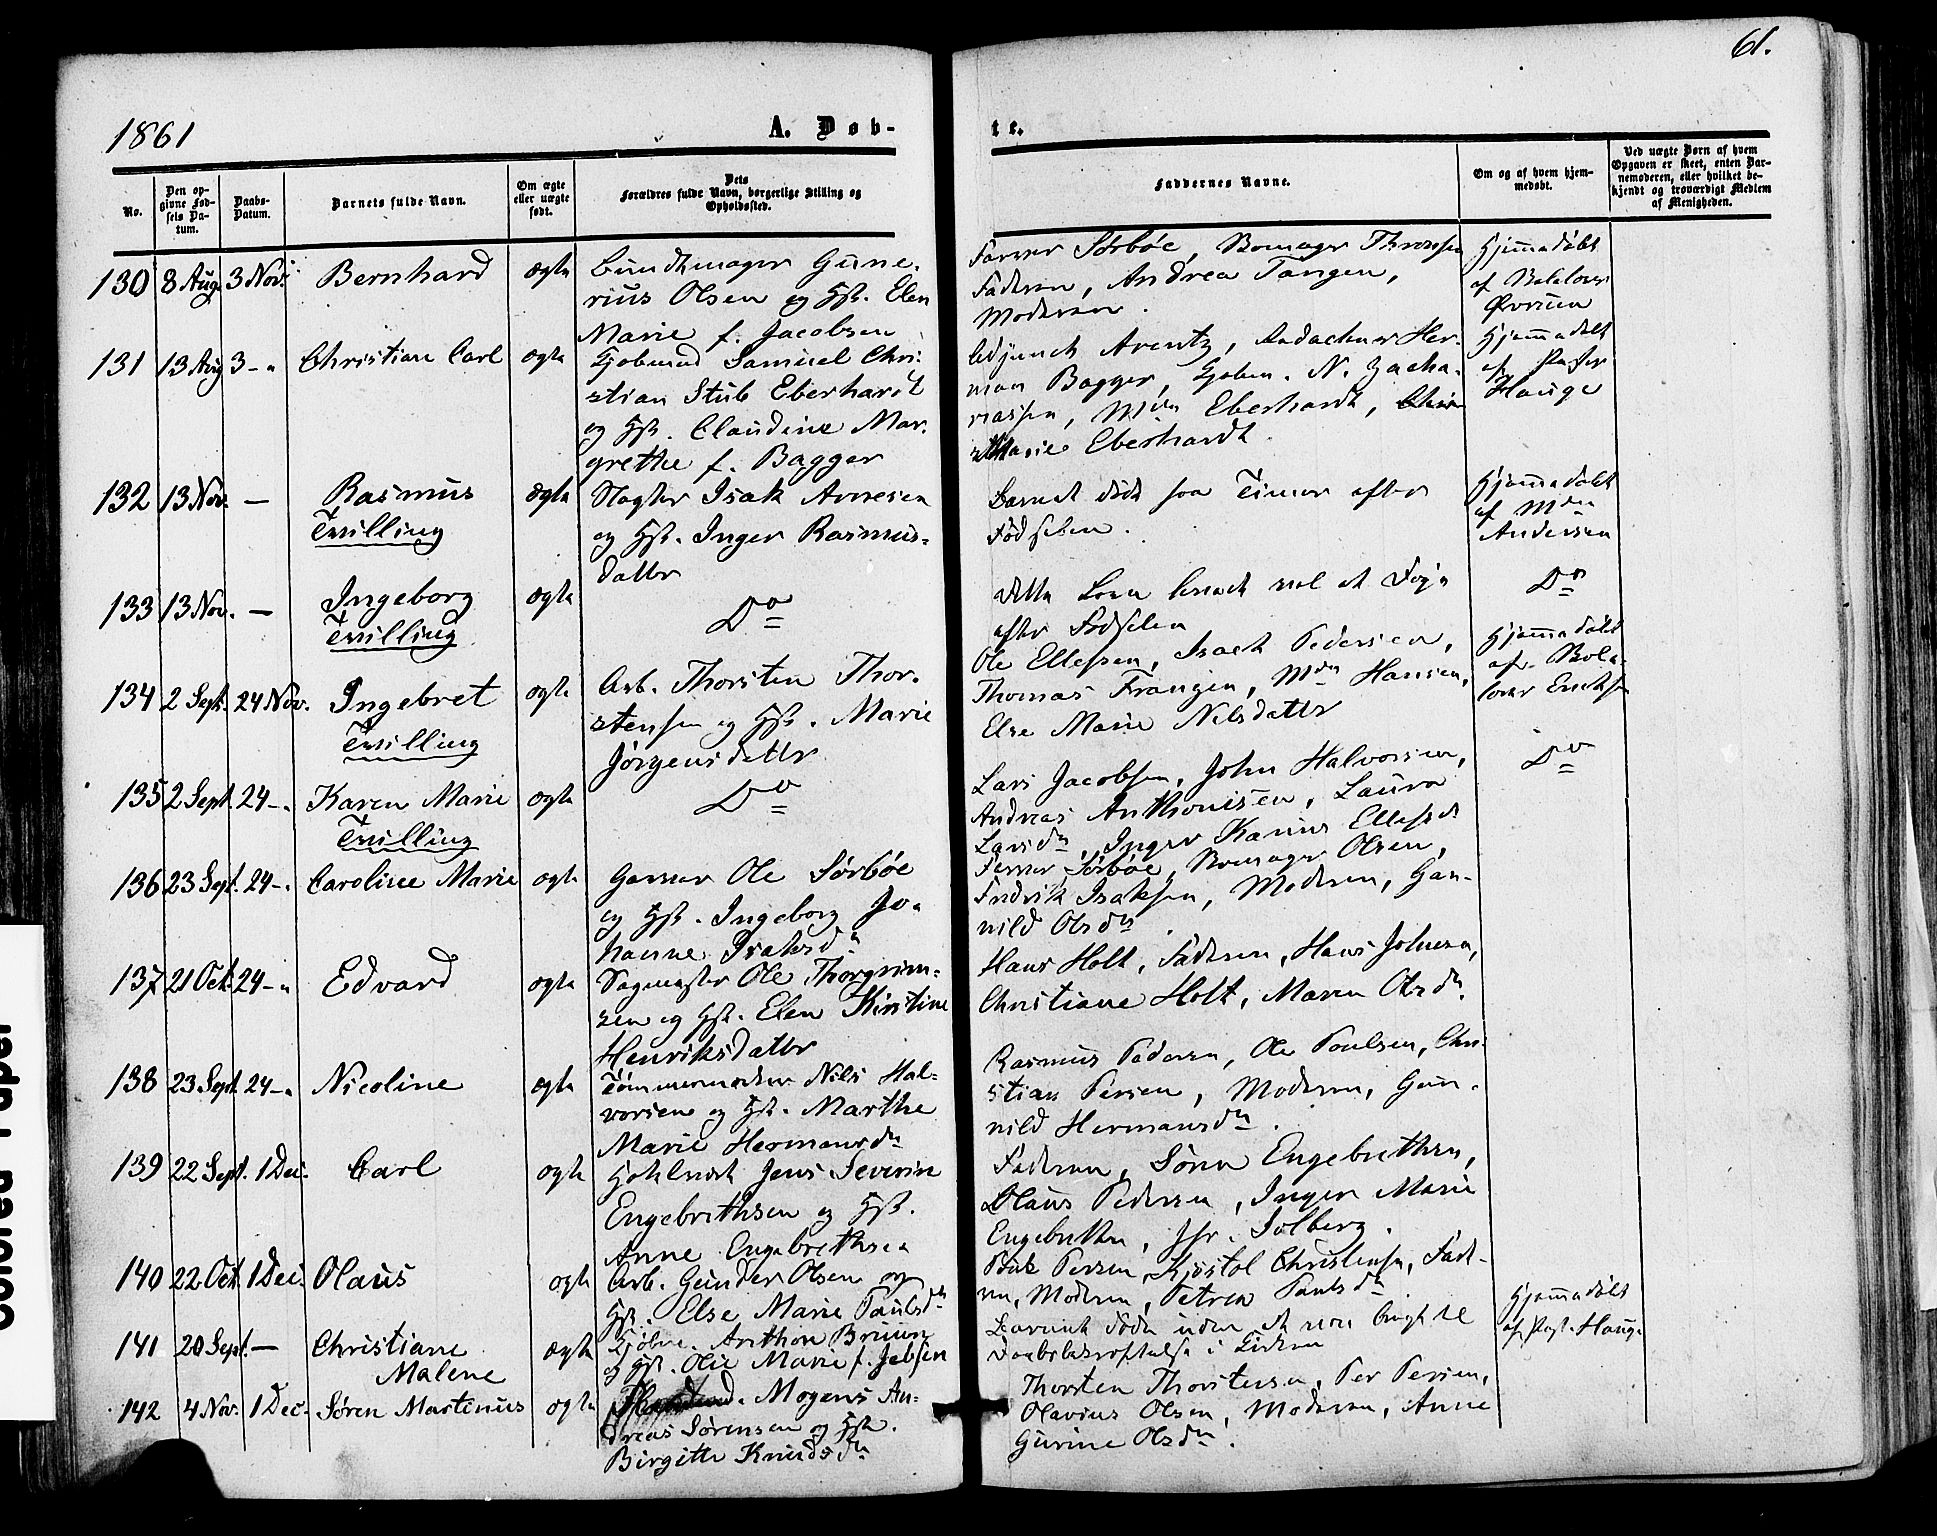 61.
1861
A. Døb-
te.
No.
Den op-
givne Fød-
sels Da-
tum.
Daabs-
Datum.
Barnets fulde Navn.
Om ægte
eller uægte
født.
Dets
Forældres fulde Navn, borgerlige Stilling og
Opholdssted.
Faddernes Navne.
Om og af hvem hjem-
medøbt.
Ved uægte Børn af hvem
Opgaven er skeet, enten Bar-
nemoderen, eller hvilket be-
kjendt og troværdigt Medlem
af Menigheden.
130 8 Aug. 3 Nov. Bernhard ægte
Bundtmager Gune-
rius Olsen og Hst. Elen
Marie f. Jacobsen
Sørbøe,
Faderen, Andrea Tangen,
Moderen.
Hjemmedøbt
af
131 13 Aug 3 - " Christian Carl ægte
Samuel Chri-
stian Stub Eberhardt
og Hst. Claudine Mar-
grethe f. Bagger
Adjunct Arentz, Her-
man Bagger, N. Zacha-
riassen, Mdm Eberhardt,
Marie Eberhardt.
Hjemmedøbt
af Pastor
Hauge
132 13 Nov. — Rasmus
Tvilling
ægte
Slagter Isak Arnesen
og Hst. Inger Rasmus-
datter
Barnet døde faa Timer efter
Fødselen.
Hjemmedøbt
af Mdm
Andersen
133 13 Nov. — Ingeborg
Tvilling
ægte
Do
Dette Barn levede vel et Døgn
efter Fødselen
Do
134 2 Sept. 24 Nov. Ingebret
Tvilling
ægte
Arb. Thorsten Thor-
stensen og Hst. Marie
Jörgensdatter
Ole Ellefsen, Isack Pedersen,
Thomas Frantzen, Mdm Hansen,
Else Marie Nilsdatter
Hjemmedøbt
af
135 2 Sept. 24 - " Karen Marie
Tvilling
ægte
Do
Lars Jacobsen, John Halvorsen,
Andreas Anthonisen, Laura
Larsdtr, Inger Karine Ellefsd
Do
136 23 Sept. 24 - " Caroline Marie ægte
Garver Ole Sørbøe
og Hst. Ingeborg Jo-
hanne Isaksdr
Sørbøe, Olsen,
Fredrik Isaksen, Moderen, Gun-
nild Olsdtr.
137 21 Oct. 24 - " Edvard ægte
Sagmester Ole Thorgrim-
sen og Hst. Elen Kirstine
Henriksdatter
Hans Holt, Faderen, Hans Johnsen,
Christiane Holt, Maren Olsdtr.
138 23 Sept. 24 - " Nicoline ægte
Tømmermand Nils Hal-
vorsen og Hst. Marthe
Marie Hermansdtr
Rasmus Pedersen, Ole Poulsen, Chri-
stian Persen, Moderen, Gun-
nild Hermansdtr.
139 22 Sept. 1 Dec. Carl ægte
Jens Severin
Engebrethsen og Hst.
Anne Engebrethsen
Faderen, Sören Engebrethsen,
Olaus Pedersen, Inger Marie
Engebrethsen, Jfr. Solberg.
140 22 Oct. 1 Dec. Olaus ægte
Arb. Gunder Olsen og
Hst. Else Marie Paulsdtr
Persen, Kjøstol Christensen, Fade-
ren, Moderen, Petrea Paulsdtr
141 20 Sept. — Christiane
Malene
ægte
Anthon Bruun
og Hst. Olie Marie f. Jebsen
Barnet døde uden at være bragt til
Daabsbekræftelse i Kirken
Hjemmedøbt
af Past. Hauge
142 4 Nov. 1 Dec. Søren Martinus ægte
Mogens An-
dreas Sørensen og Hst.
Birgitte Knudsdtr
Thorsten Thorstensen, Per Persen,
Olavius Olsen, Moderen, Anne
Gurine Olsdtr.
Colored Paper